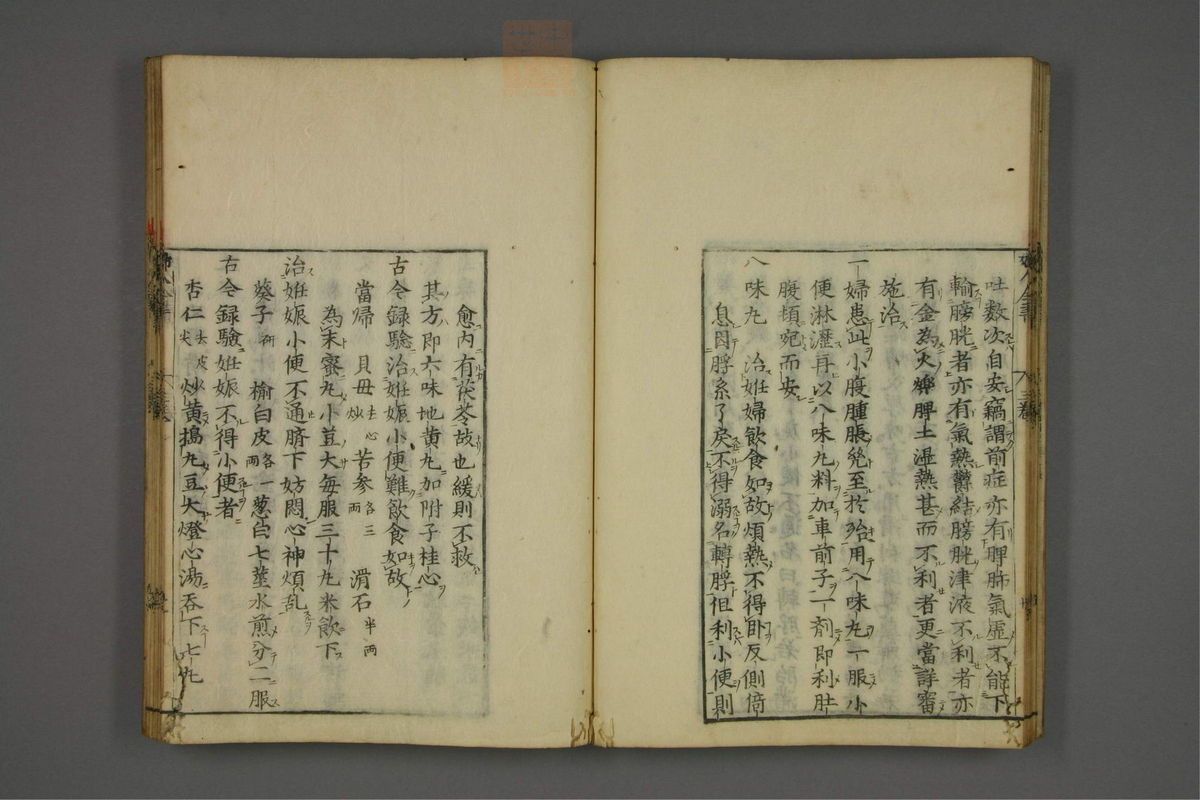 吐數次自安竊謂前症亦有脾肺氣虛不能下
輸膀胱者亦有氣熱鬱結膀胱津液不利者亦
有金為火爍脾土濕熱甚而不利者更當詳審
施治
一婦患此小腹腫脹幾至於殆用八味丸一服小
便淋瀝再以八味丸料加車前子一劑即利肚
腹頓宛而安
八味丸 治妊婦飲食如故煩熱不得臥反側倚
息因脬系了戾不得溺名轉脬但利小便則
愈內有茯苓故也緩則不救
其方即六味地黃丸加附子桂心
古今録驗治妊娠小便難飲食如故
當歸 貝母去心炒 苦參各三兩 滑石半兩
為末蜜丸小荳大每服三十丸米飲下
治妊娠小便不通臍下妨悶心神煩乱
葵子研 榆白皮各一兩 葱白七莖水煎分二服
古今録驗妊娠不得小便者
杏仁去皮尖炒黃搗丸豆大燈心湯吞下七丸